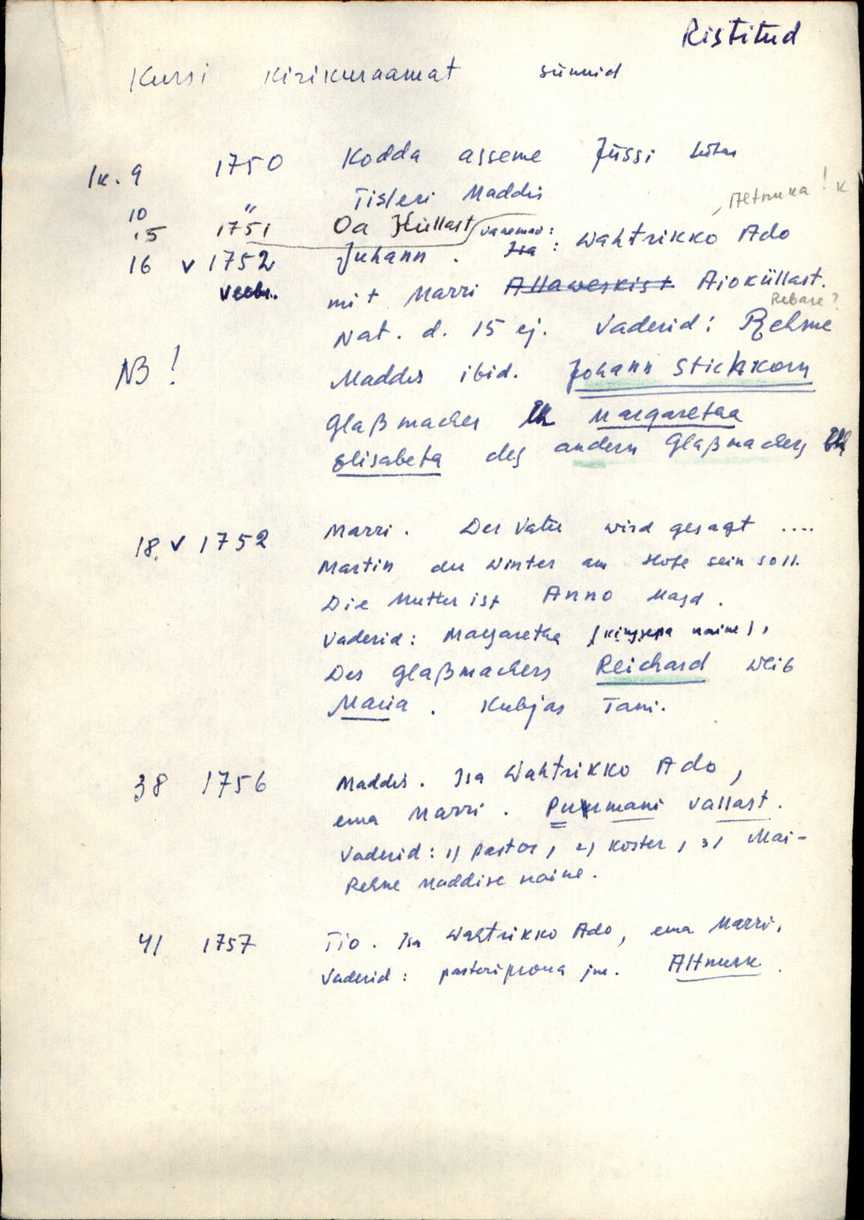 Ristitud
Kursi kirikuraamat sünnid
lk. 9 1750 Kodda asseme Jüssi
10 " Tisleri Maddis
Altnurka! K
15 1751 Oa Hüllast vanemad:
16 v 1752 Juhann. Isa: Wahtrikko Ado
veebr. mit Marri Allaweskist Aioküllast.
Rebase?
Nat. d. 15 ej. Vaderid: Rehme
NB! Maddis ibid. Johann Stichkorn
Glaßmacher Margaretha
Elisabeta des andern Glaßmachers
18. v 1752 Marri. Der Vater wird gesagt ....
Martin der Winter am Hofe sein soll.
Die Mutter ist Anno Magd.
Vaderid: Margaretha (kingsepa naine),
Des Glaßmachers Reichard Weib
Maria. Kubjas Tani.
38 1756 Maddis. Isa Wahtrikko Ado,
ema Marri. vallast.
Vaderid: 1) pastor, 2) köster, 3) Mai-
Rehne Maddise naine.
41 1757 Tio. Isa Wahtrikko Ado, ema Marri.
Vaderid: pastoriproua jm. Altnurk.